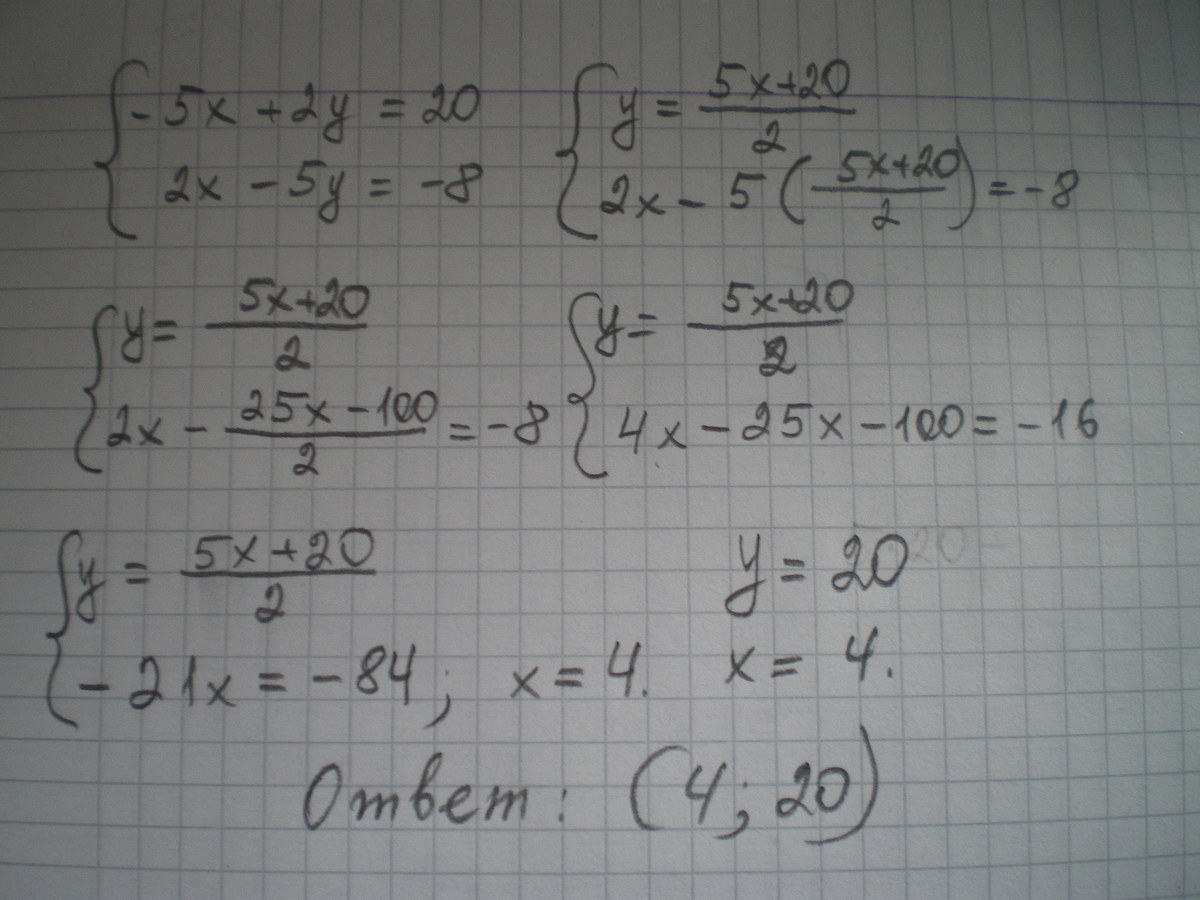 { -5x + 2y = 20
2x - 5y = -8
{ y = (5x+20)/2
2x - 5 (5x+20)/2 = -8
{ y = (5x+20)/2
2x - (25x-100)/2 = -8
{ y = (5x+20)/2
4x - 25x - 100 = -16
{ y = (5x+20)/2
-21x = -84; x = 4.
y = 20
x = 4.
Ответ: (4; 20)